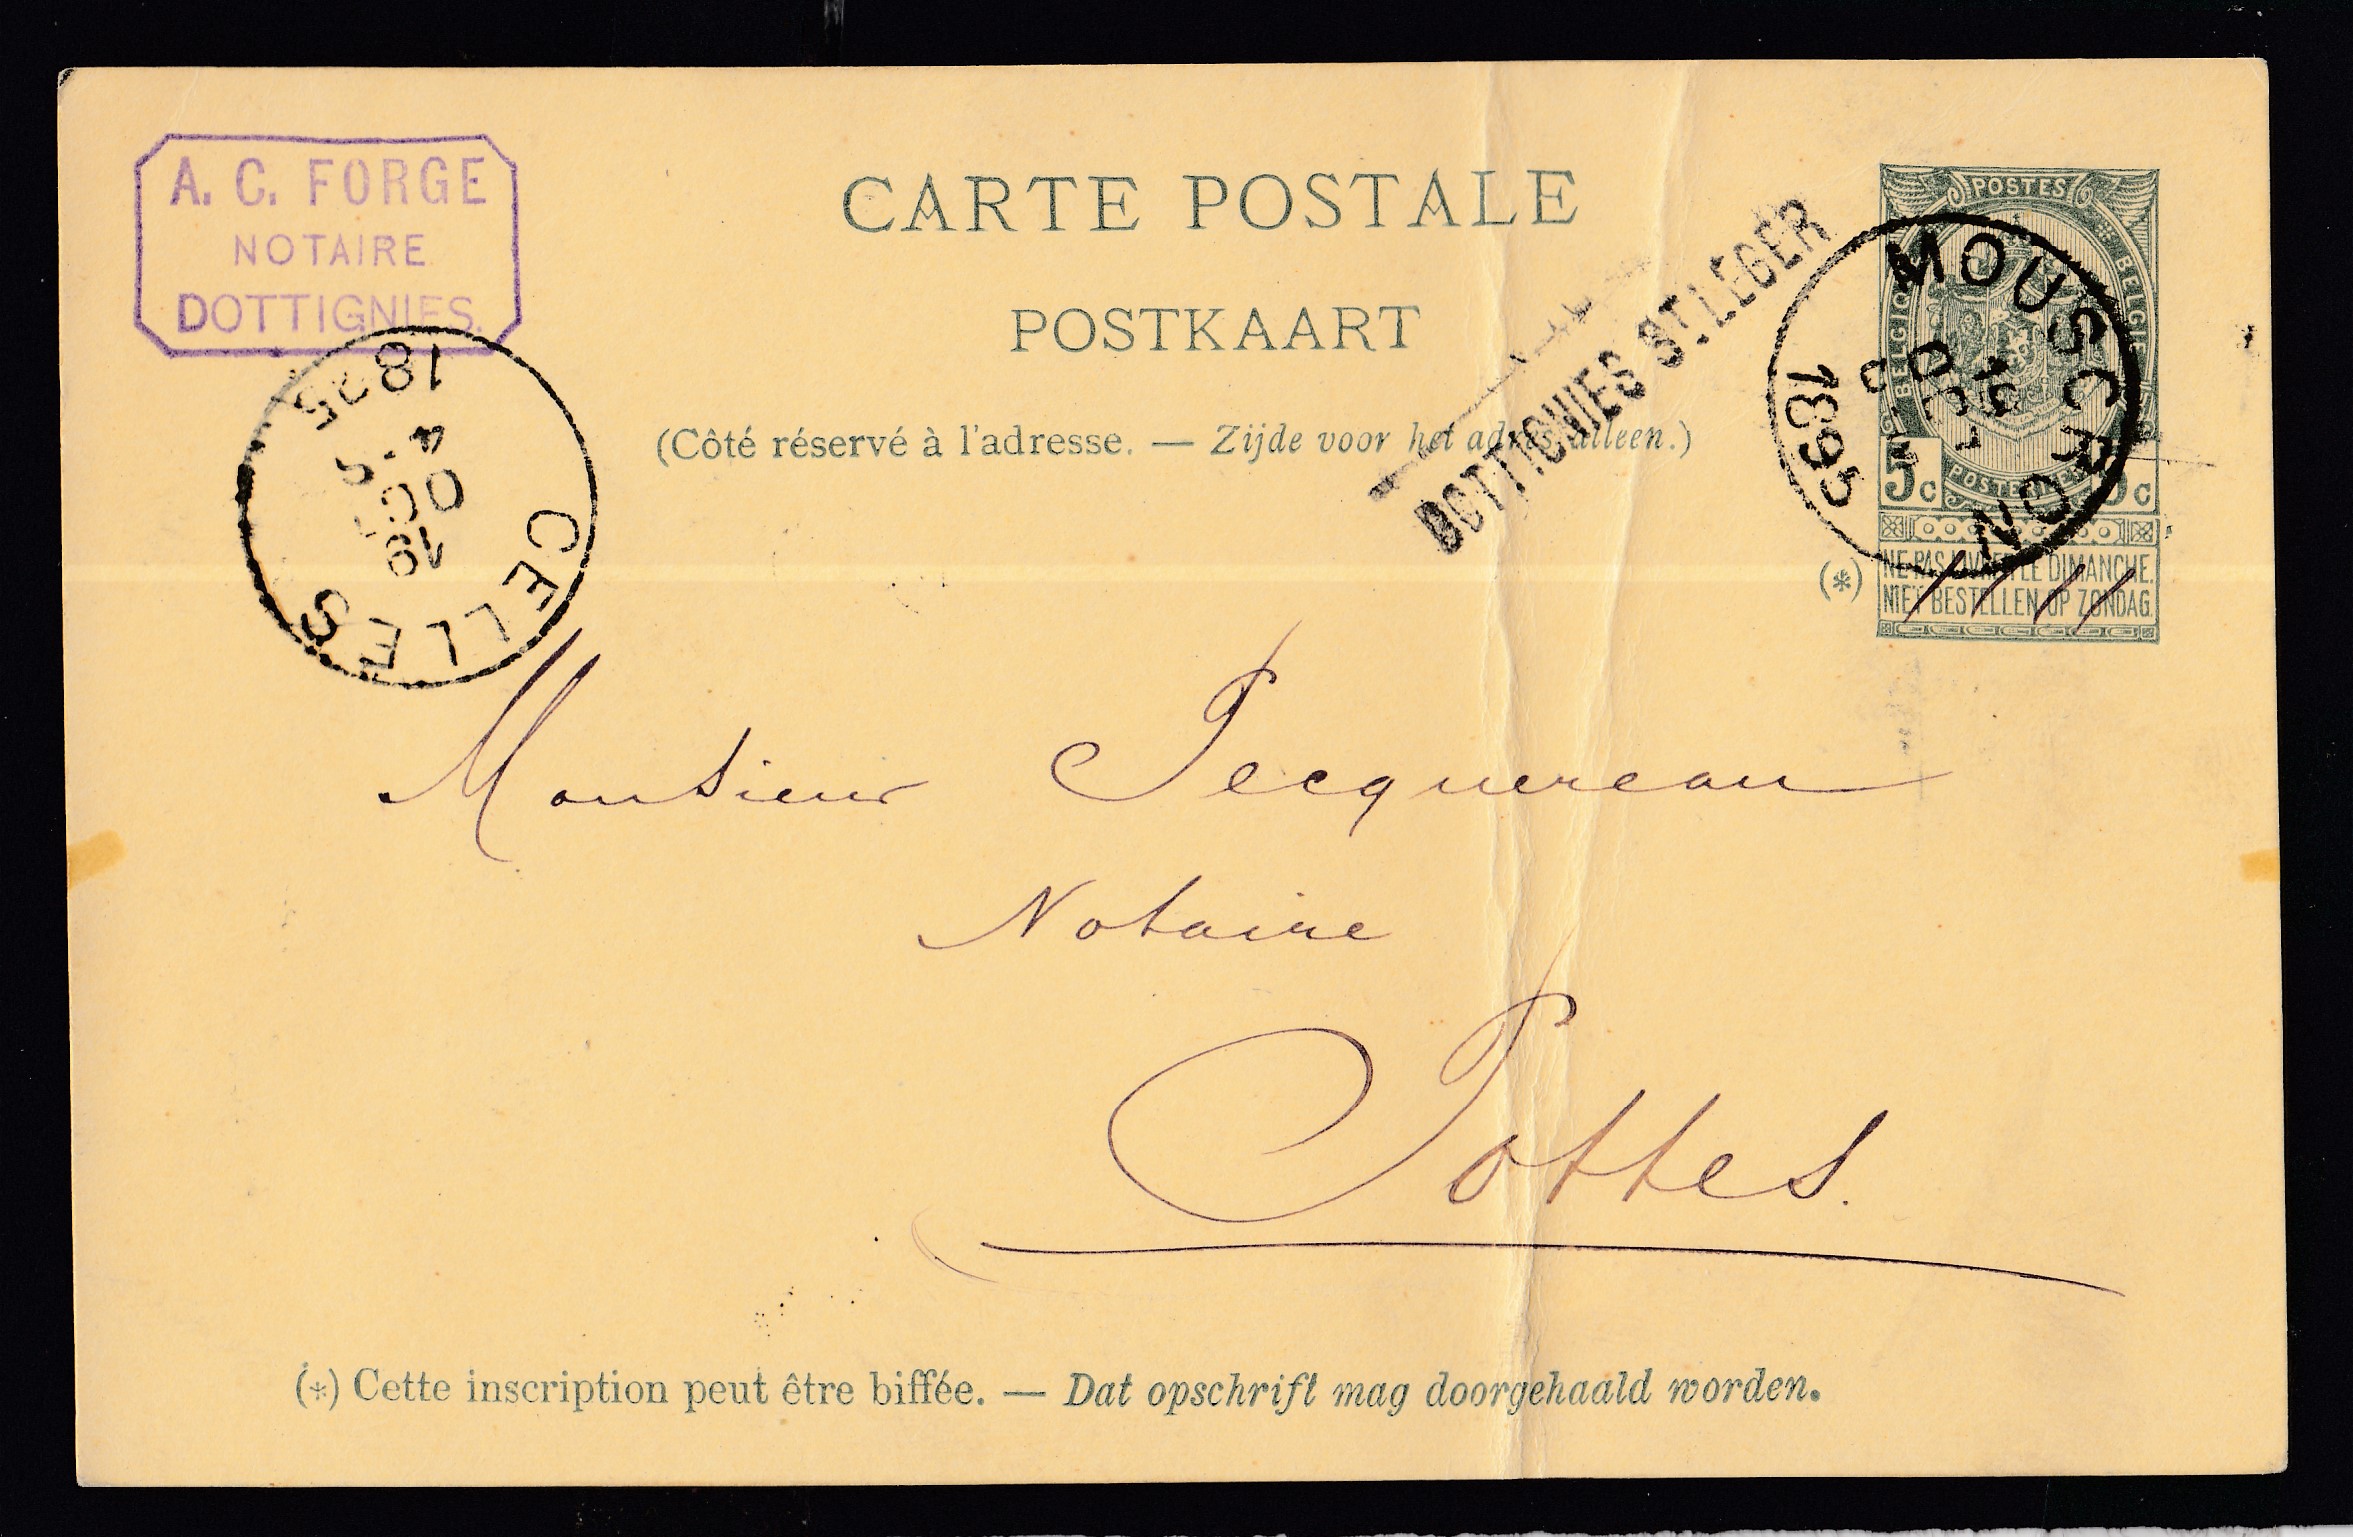 A. C. FORGE
NOTAIRE
DOTTIGNIES.
CARTE POSTALE
POSTKAART
(Côté réservé à l'adresse. — Zijde voor het adres alleen.)
DOTTIGNIES ST LEGER
POSTES
BELGIQUE BELGIE
5 c 5 c
POSTERIJEN
(*) NE PAS LIVRER LE DIMANCHE.
NIET BESTELLEN OP ZONDAG.
MOUSCRON
OCT
1895
CELLES
19
OCT
4-S
1895
Monsieur Pecquereau
Notaire
Pottes.
(*) Cette inscription peut être biffée. — Dat opschrift mag doorgehaald worden.